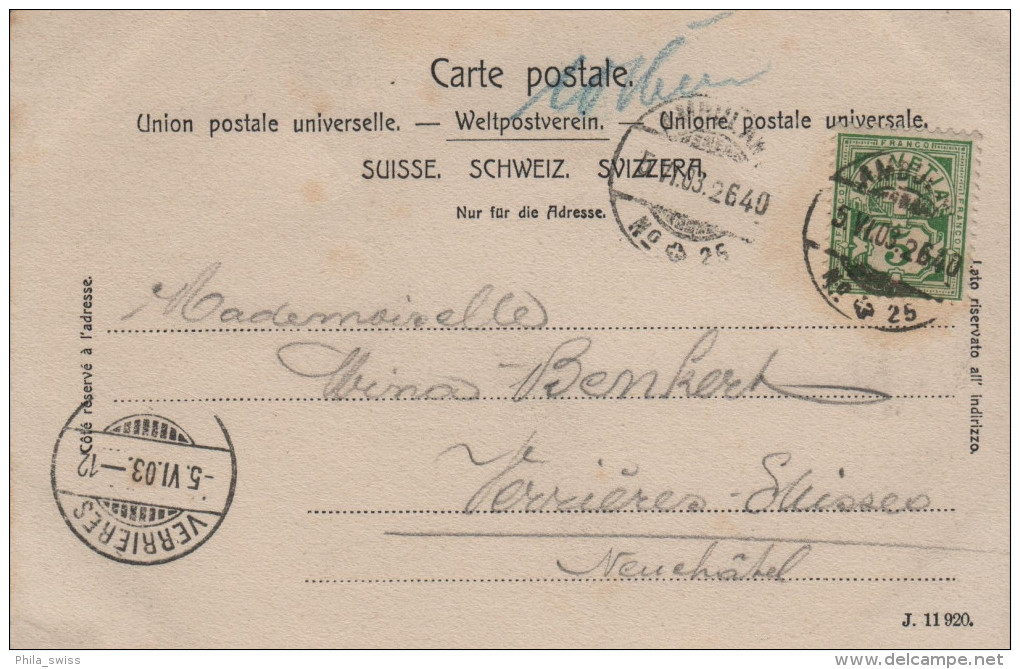 Carte postale.
Union postale universelle. — Weltpostverein. — Unione postale universale.
SUISSE. SCHWEIZ. SVIZZERA.
Nur für die Adresse.
AMBULANT
5.VI.03.2640
No 25
FRANCO
AMBULANT
5.VI.03.2640
No 25
Côté réservé à l'adresse.
Lato riservato all' indirizzo.
Mademoiselle
Wina Benkert
Verrières-Suisses
Neuchâtel
-5.VI.03.-12
VERRIÈRES
J. 11 920.
Phila_swiss
delcampe.net